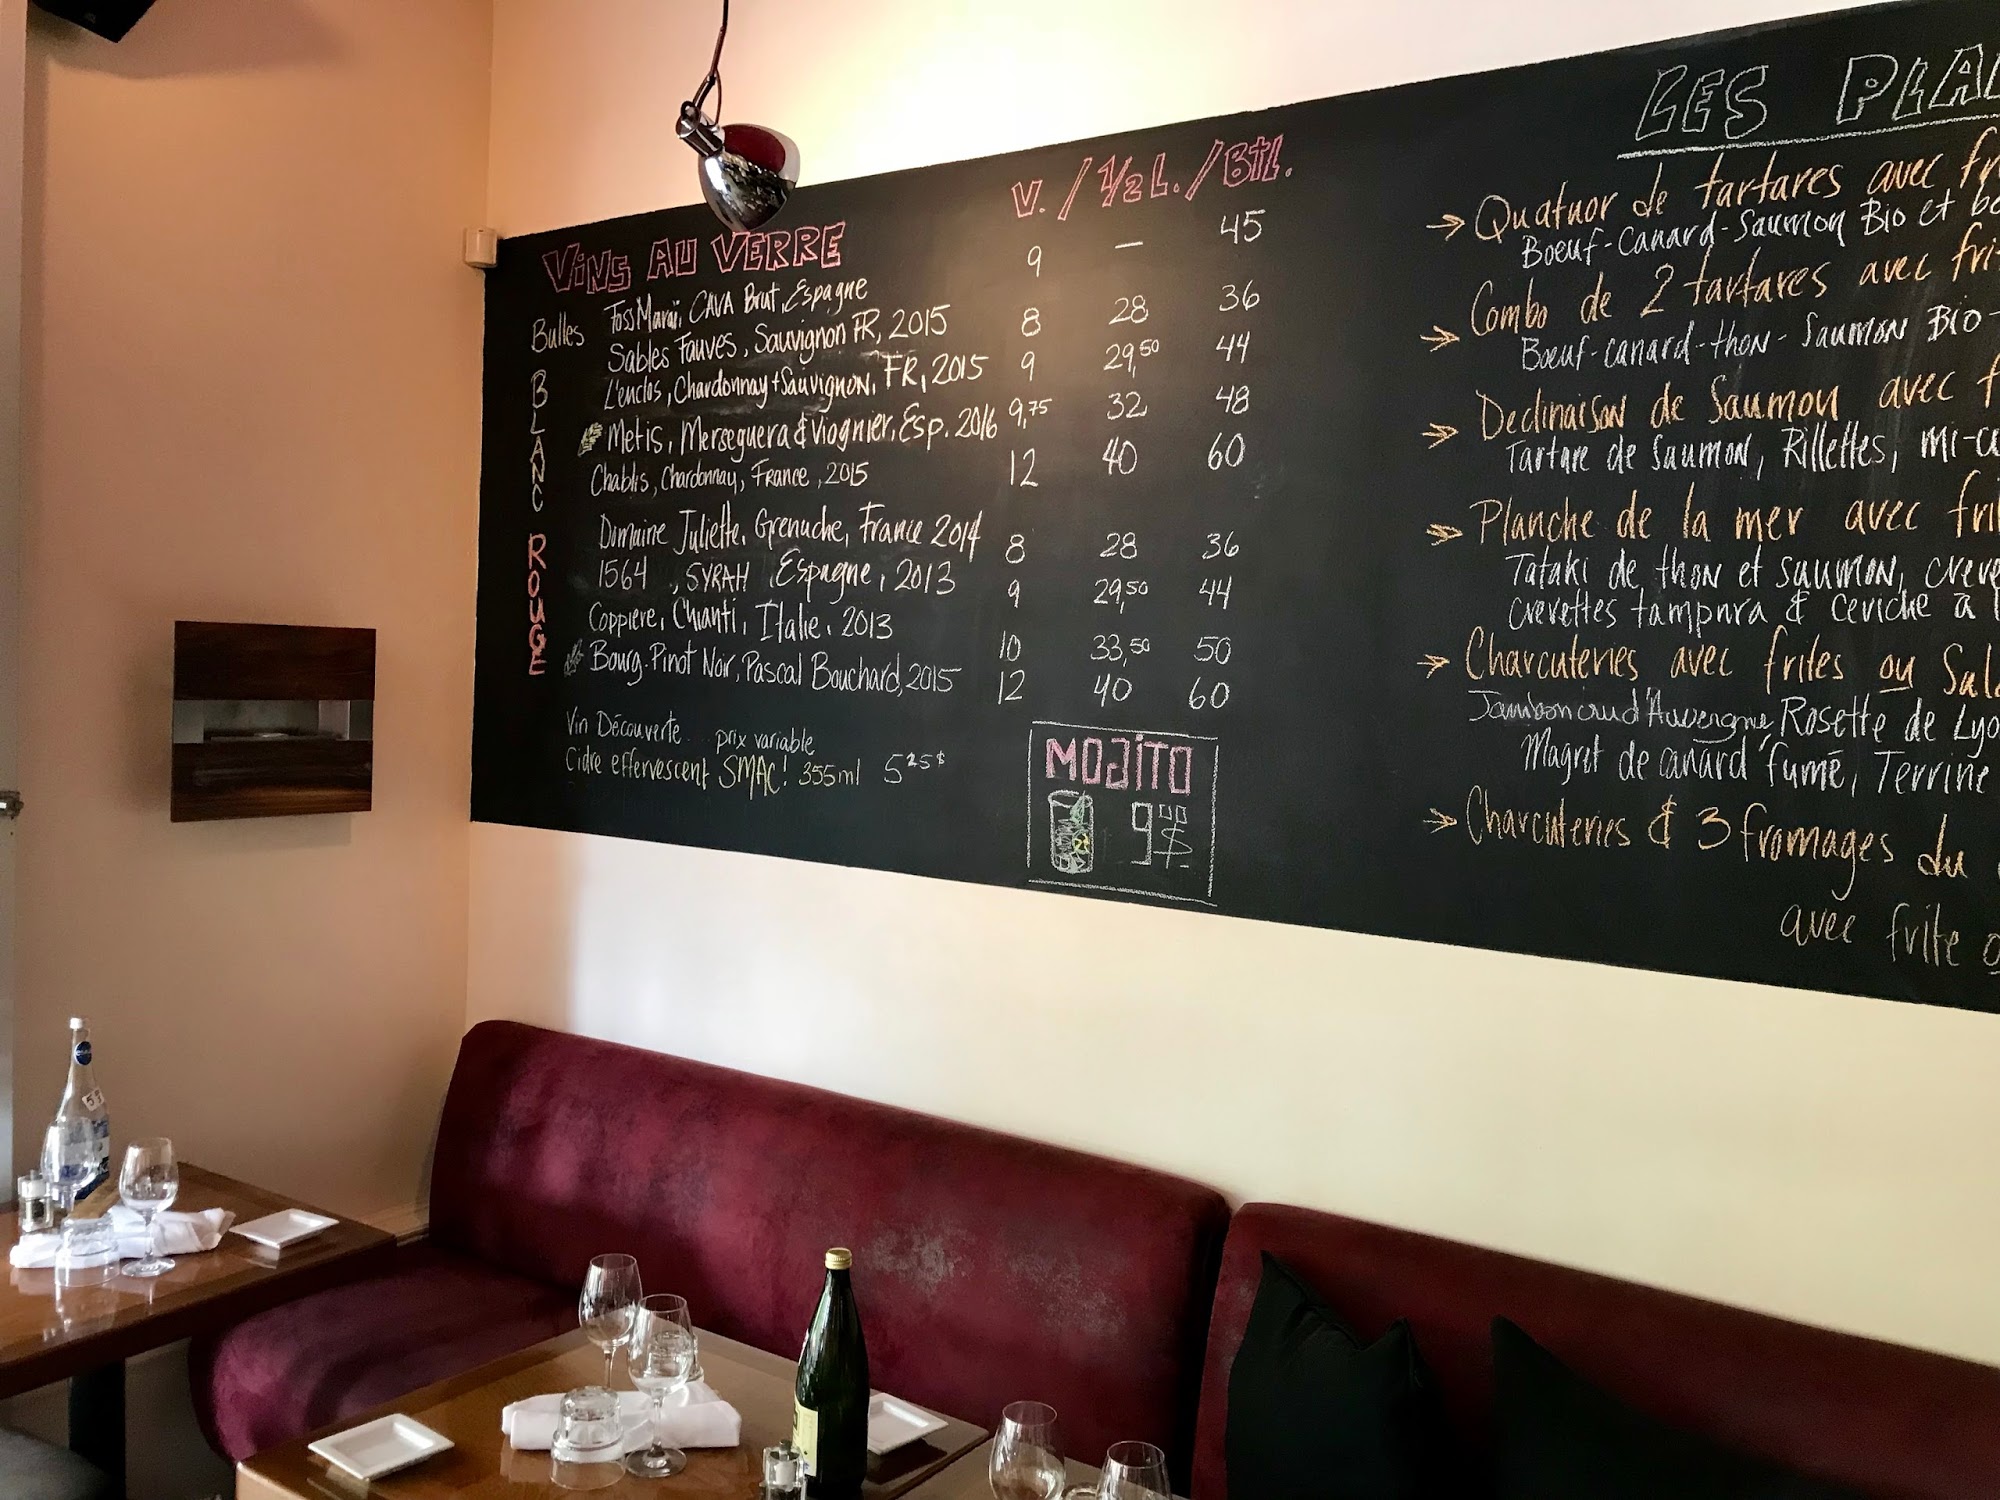 VINS AU VERRE V. / 1/2 L. / BTL.
Bulles Foss Maraï, CAVA Brut, Espagne 9 — 45
BLANC
Sables Fauves, Sauvignon FR, 2015 8 28 36
L'enclos, Chardonnay + Sauvignon, FR, 2015 9 29,50 44
Metis, Merseguera & Viognier, Esp. 2016 9,75 32 48
Chablis, Chardonnay, France, 2015 12 40 60
ROUGE
Domaine Juliette, Grenache, France 2014 8 28 36
1564, SYRAH, Espagne, 2013 9 29,50 44
Coppiere, Chianti, Italie, 2013 10 33,50 50
Bourg. Pinot Noir, Pascal Bouchard, 2015 12 40 60
Vin Découverte... prix variable
Cidre effervescent SMAC! 355ml 5 25 $
MOJITO
9 00 $
LES PLA
→ Quatuor de tartares avec fr
Boeuf-Canard-Saumon Bio et
→ Combo de 2 tartares avec fri
Boeuf-canard-thon-Saumon Bio-
→ Declinaison de Saumon avec f
Tartare de Saumon, Rillettes, mi-cu
→ Planche de la mer avec fri
Tataki de thon et saumon, creve
Crevettes tampura & ceviche à l
→ Charcuteries avec frites ou Sala
Jambon crud d'Auvergne, Rosette de Lyo
Magret de canard fumé, Terrine
→ Charcuteries & 3 fromages du
avec frite o